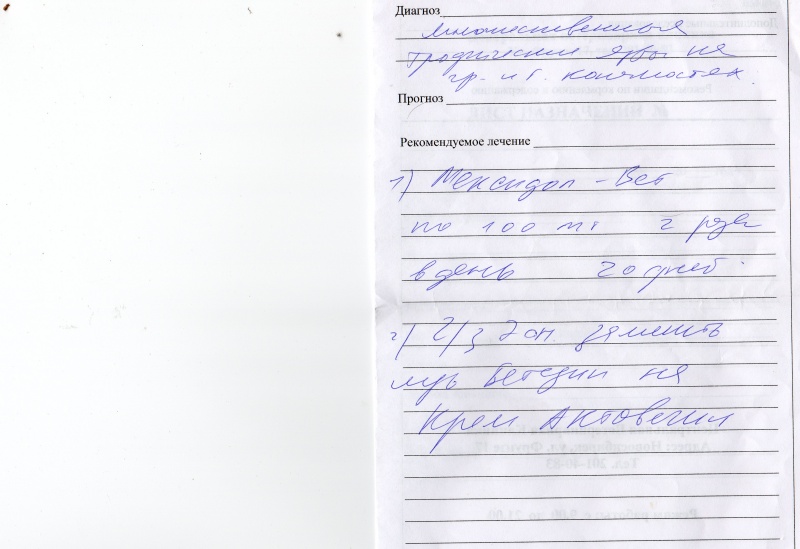 Диагноз
множественные
трофические язвы на
гр. и т. конечностях.
Прогноз
Рекомендуемое лечение
1) Мексидол - Вет
по 100 мг 2 раза
в день 20 дней.
2) Ч/з 7 дн. заменить
мазь Бетадин на
Крем Актовегин